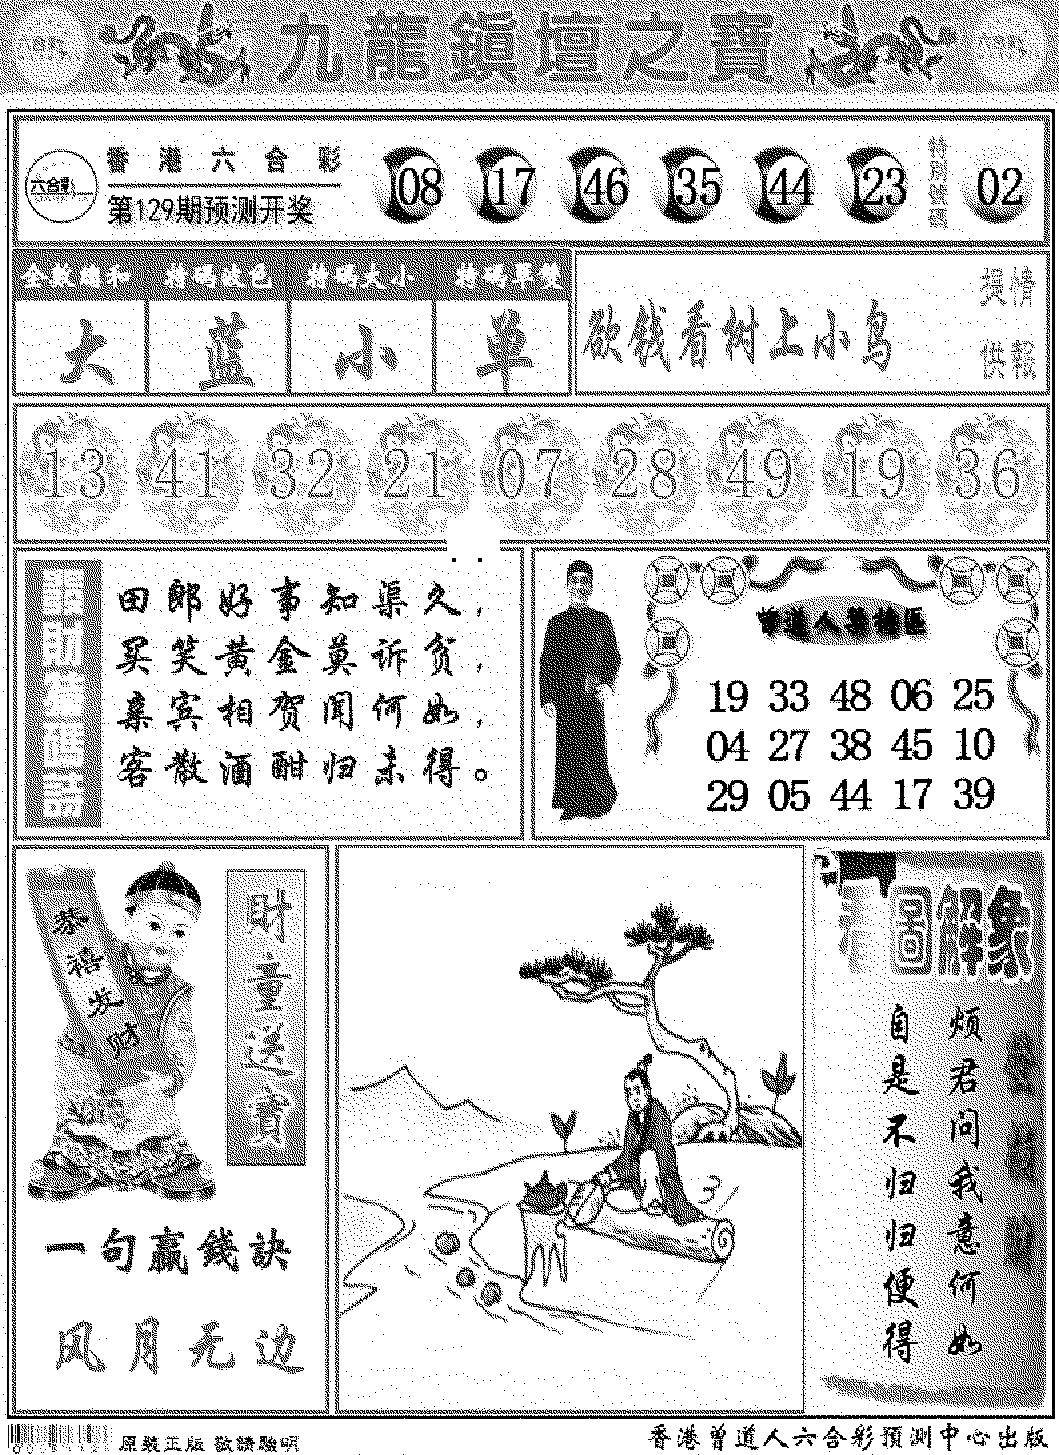 九龍鎮壇之寶
香港六合彩
六合彩
第129期预测开奖
08 17 46 35 44 23
特别號碼
02
全数總和 特码波色 特码大小 特码单雙
大 蓝 小 单
欲钱看树上小鸟
损情
供報
13 41 32 21 07 28 49 19 36
田郎好事知渠久，
买笑黄金莫诉贫，
亲宾相贺闻何如，
客散酒酣归未得。
曾道人
19 33 48 06 25
04 27 38 45 10
29 05 44 17 39
恭禧发财
財童送寶
一句赢錢訣
风月无边
看圖解象
烦君问我意何如
自是不归归便得
原裝正版 敬請驗明
香港曾道人六合彩預測中心出版